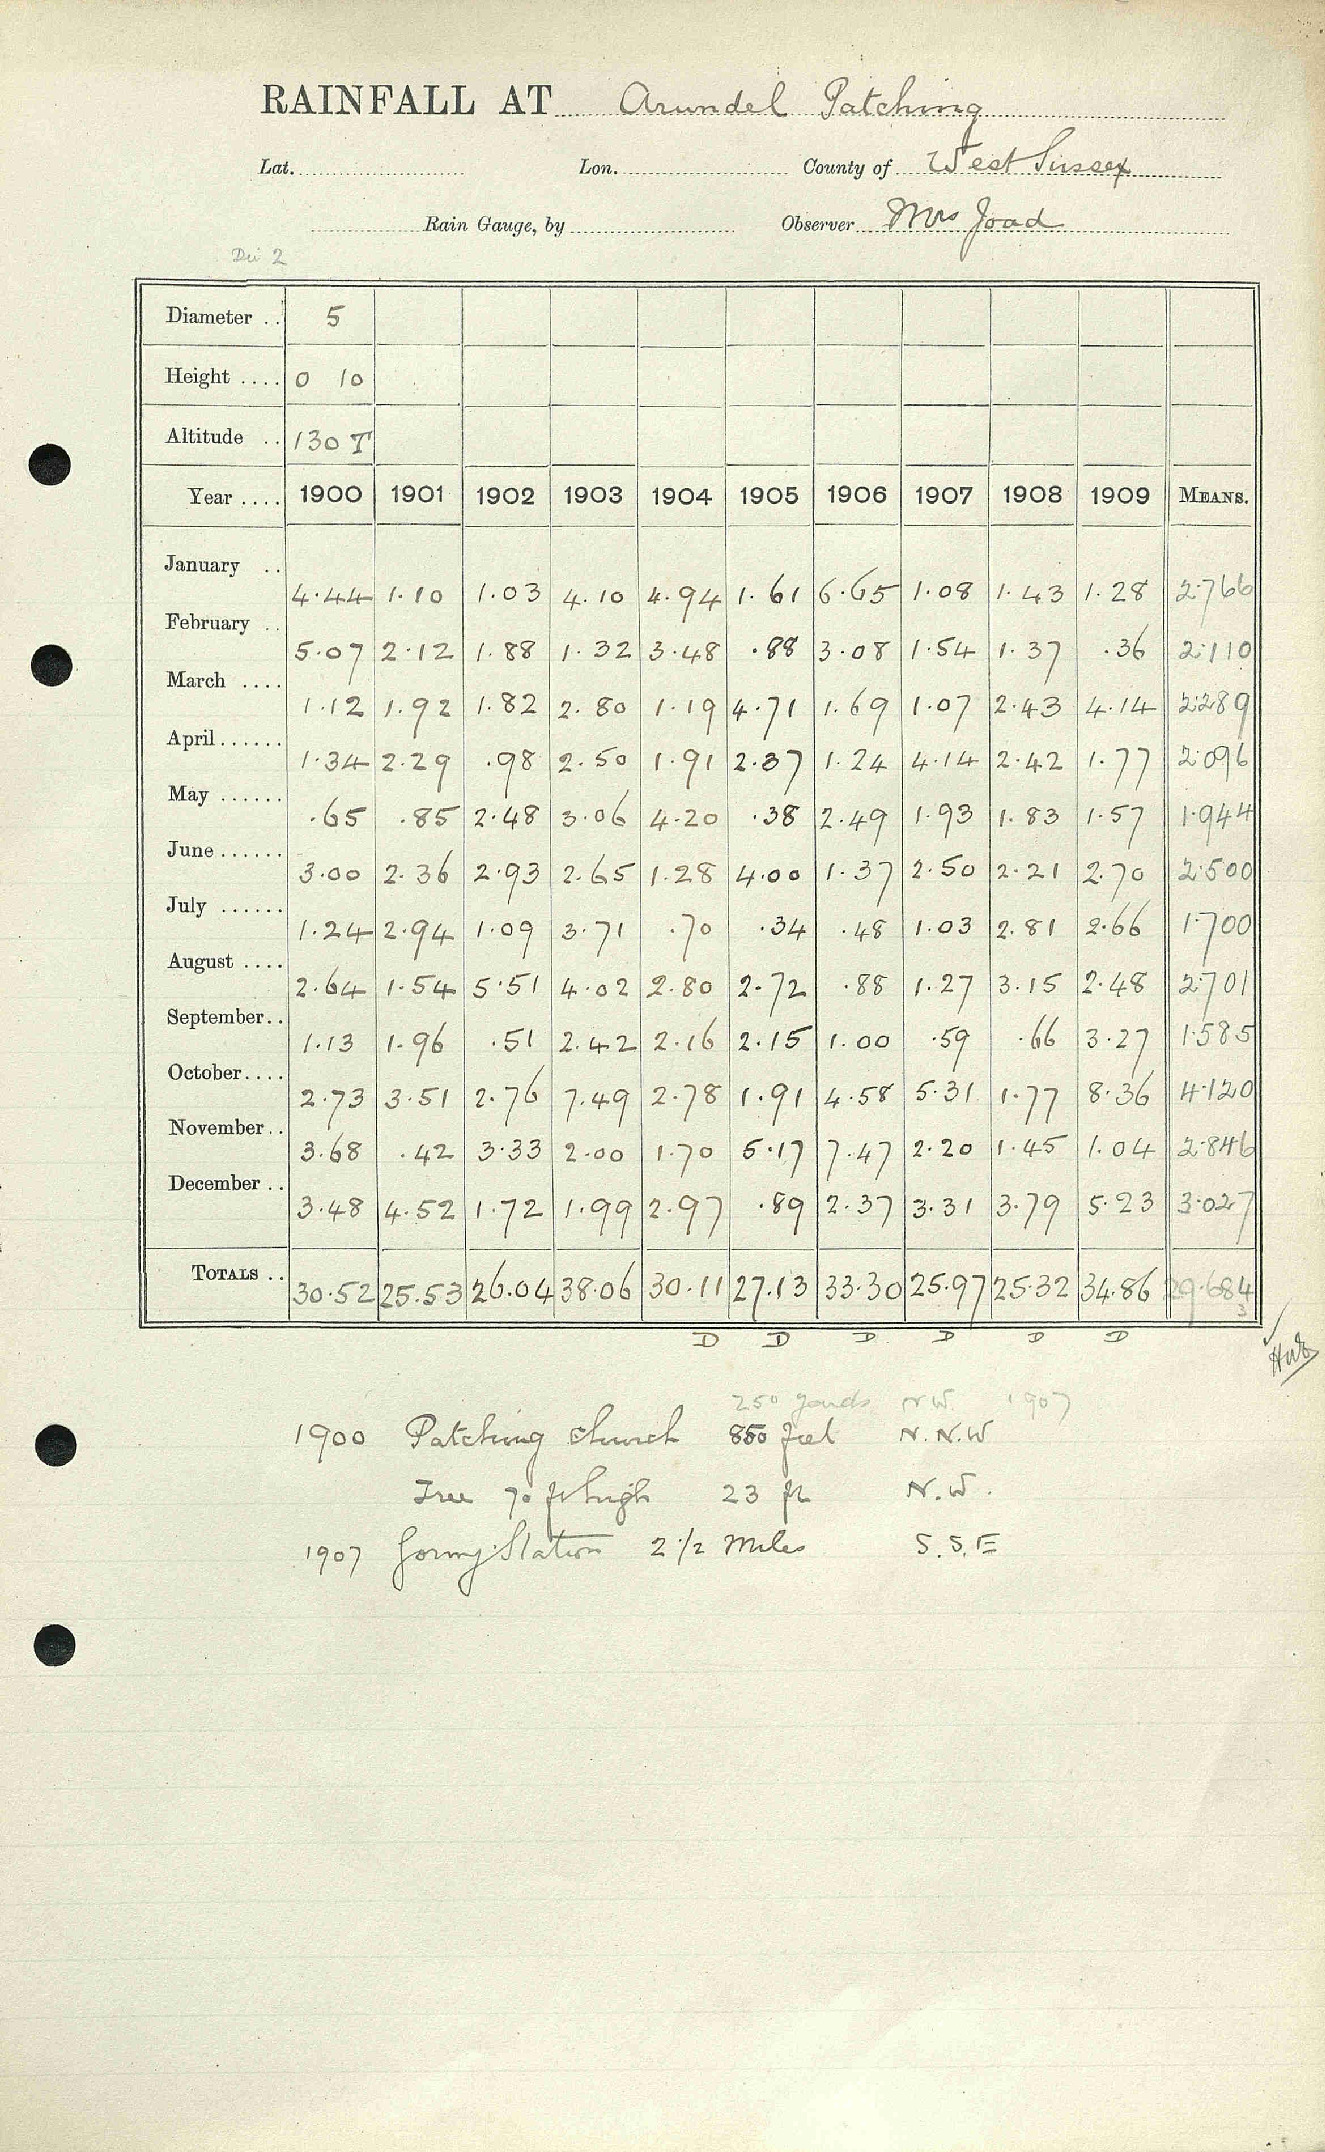 RAINFALL AT Arundel Patching
Lat. Lon. County of West Sussex
Rain Gauge, by Observer Mrs Joad
Div 2
Diameter .. 5
Height .... 0 10
Altitude .. 130 T
Year .... 1900 1901 1902 1903 1904 1905 1906 1907 1908 1909 MEANS.
January .. 4.44 1.10 1.03 4.10 4.94 1.61 6.65 1.08 1.43 1.28 2.766
February .. 5.07 2.12 1.88 1.32 3.48 .88 3.08 1.54 1.37 .36 2.110
March .... 1.12 1.92 1.82 2.80 1.19 4.71 1.69 1.07 2.43 4.14 2.289
April ...... 1.34 2.29 .98 2.50 1.91 2.37 1.24 4.14 2.42 1.77 2.096
May ...... .65 .85 2.48 3.06 4.20 .38 2.49 1.93 1.83 1.57 1.944
June ...... 3.00 2.36 2.93 2.65 1.28 4.00 1.37 2.50 2.21 2.70 2.500
July ...... 1.24 2.94 1.09 3.71 .70 .34 .48 1.03 2.81 2.66 1.700
August .... 2.64 1.54 5.51 4.02 2.80 2.72 .88 1.27 3.15 2.48 2.701
September .. 1.13 1.96 .51 2.42 2.16 2.15 1.00 .59 .66 3.27 1.585
October .... 2.73 3.51 2.76 7.49 2.78 1.91 4.58 5.31 1.77 8.36 4.120
November .. 3.68 .42 3.33 2.00 1.70 5.17 7.47 2.20 1.45 1.04 2.846
December .. 3.48 4.52 1.72 1.99 2.97 .89 2.37 3.31 3.79 5.23 3.027
TOTALS .. 30.52 25.53 26.04 38.06 30.11 27.13 33.30 25.97 25.32 34.86 29.684
3
D D D D D D
250 yards NW. 1907
1900 Patching Church 850 feet N.N.W
Tree 70 ft high 23 ft N.W.
1907 Goring Station 2 1/2 Miles S.S.E